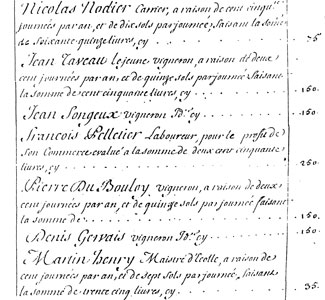 Nicolas Nodier Carrier, a raison de cent cinqu.te
journées par an, et de dix sols par journée, faisant la somme
de soixante quinze livres, cy . . . 75
Jean Taveau le jeune vigneron, a raison de deux
cent journées par an, et de quinze sols par journée faisant
la somme de cent cinquante livres, cy . . . 150.
Jean Songeux vigneron Id.^ cy . . . 150.
François Pelletier Laboureur, pour le profit de
son Commerce evalué a la somme de deux cens cinquante
livres, cy . . . 250.
Pierre Du Bouloy, vigneron, a raison de deux
cent journées par an, et de quinze sols par journée faisant
la somme de . . . 150.
Denis Gervais vigneron Id.^ cy . . . 150.
Martin henry Maistre d'Ecolle, a raison de
cent journées par an, et de sept sols par journée, faisant
la somme de trente cinq livres, cy . . . 35.